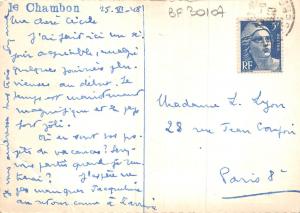 le Chambon
25.VI-48
BF 30107
Ma chère Cécile
J'ai fait ici un séjour agréable, malgré
quelques journées pluvieuses au début. Le
temps est maintenant
magnifique et le pays
fort joli.
Où en sont vos projets de vacances?
partis quand je
J'espère ne
pas manquer Jacqueline
au retour comme à l'arrivée
Je vous embrasse très
RF
Madame L. Lyon
28 rue Jean
Paris 8e